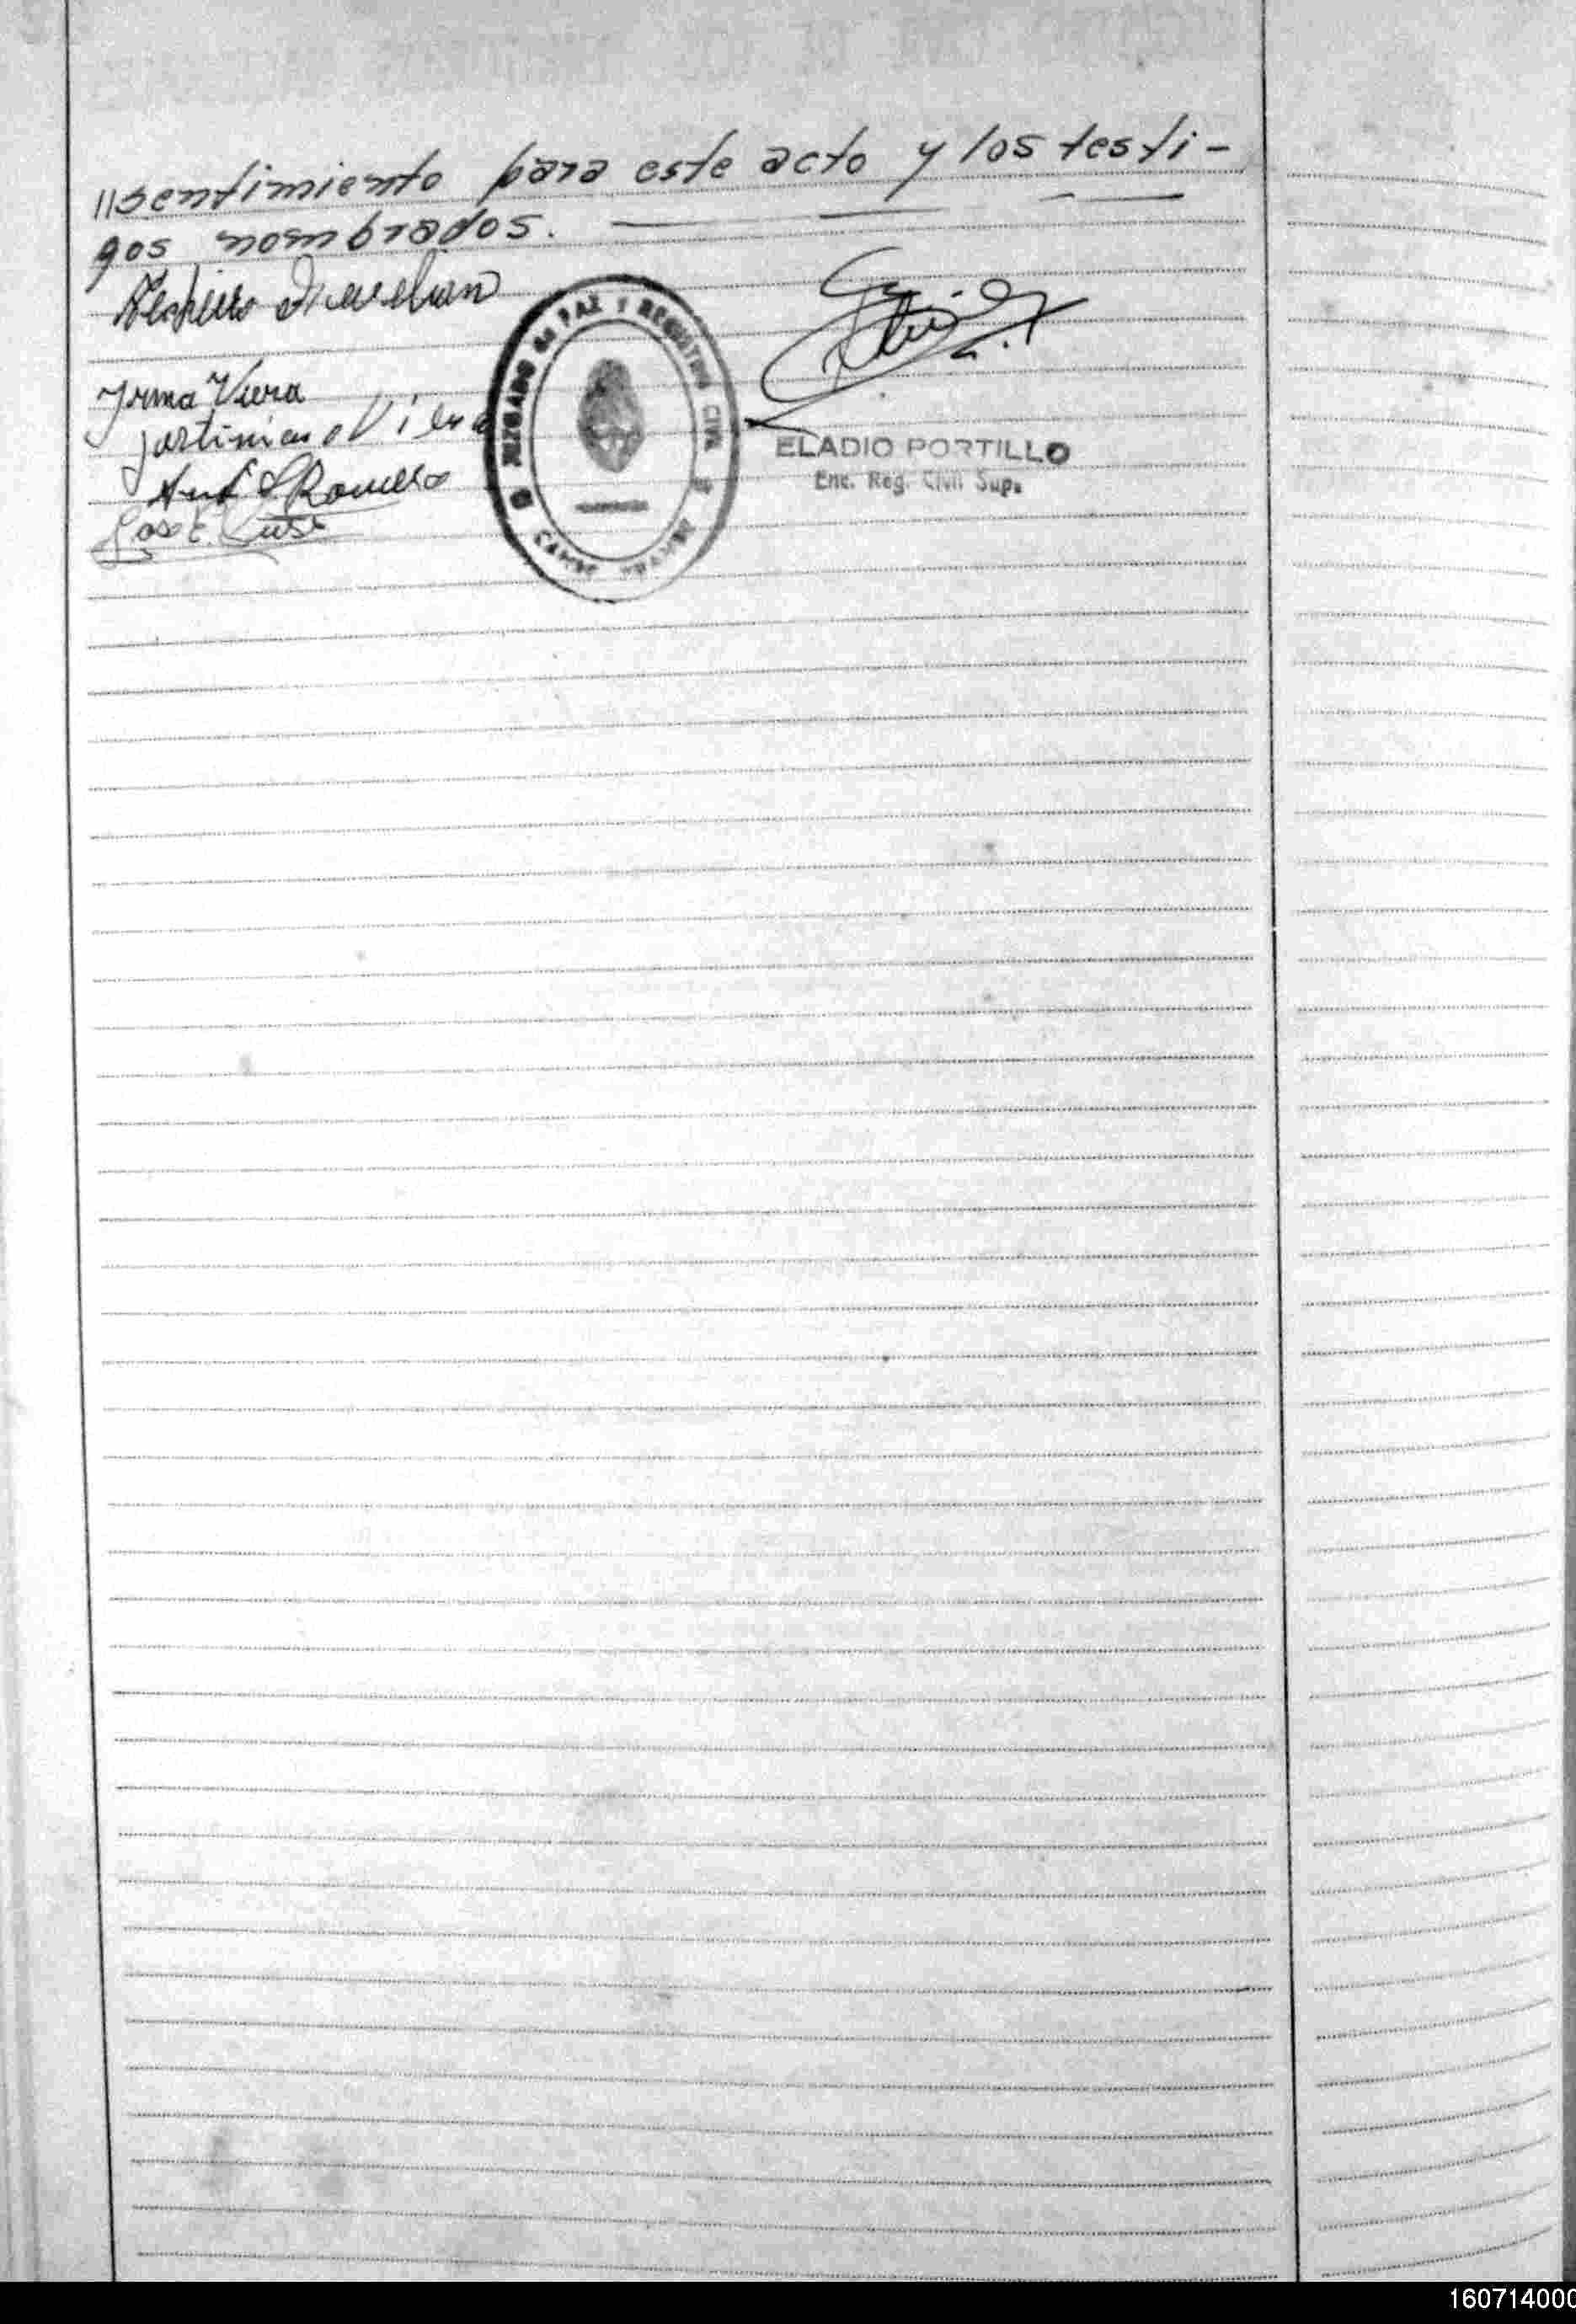 //sentimiento para este acto y los testi-
gos nombrados.
Irma Viera
Viera
Romero
Jose E.
JUZGADO de PAZ Y REGISTRO CIVIL
ELADIO PORTILLO
Enc. Reg. Civil Sup.
160714000